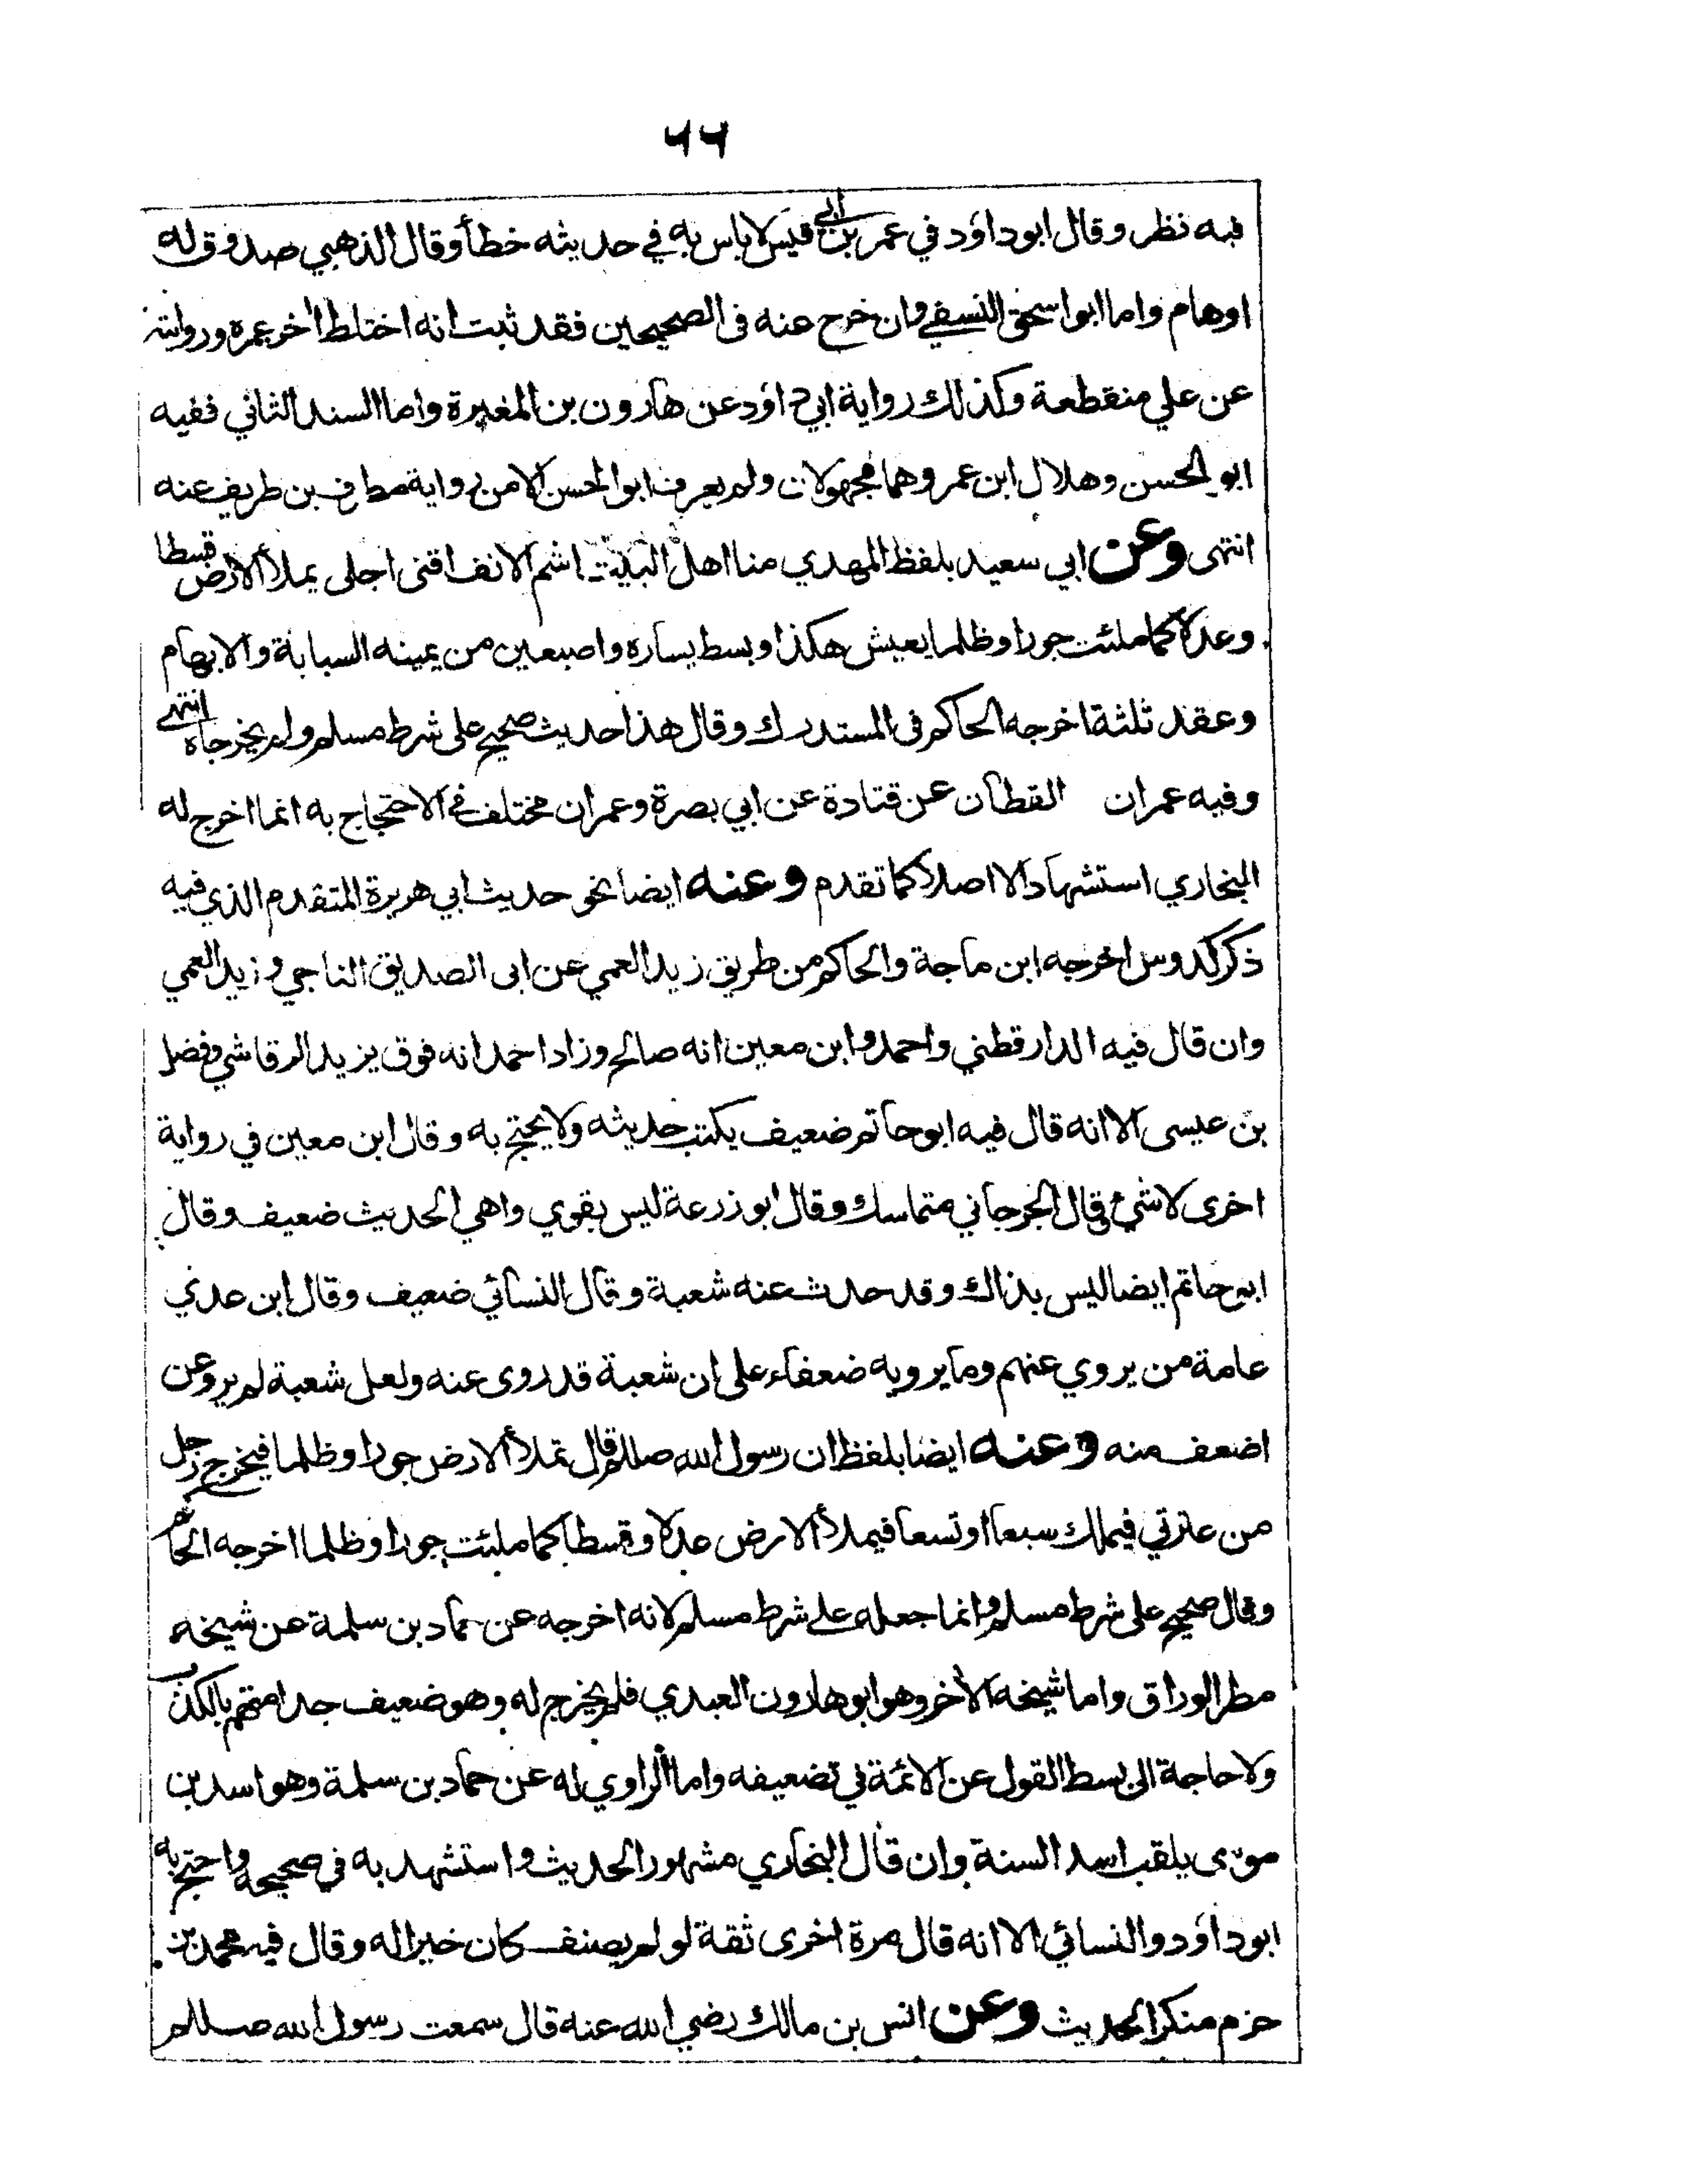 ٦٦
فيه نظر وقال ابوداؤد في عمر بن ابي قيس لاباس به في حديثه خطأ وقال الذهبي صدوق له
اوهام واما ابوا سحق النسفي وان خرج عنه فى الصحيحين فقد ثبت انه اختلط اٰخر عمره وروايته
عن علي منقطعة وكذلك رواية ابي داؤد عن هارون بن المغيرة واما السند الثاني ففيه
ابو الحسن وهلال ابن عمر وهما مجهولان ولم يعرف ابوا لحسن الا من رواية مطرف بن طريف عنه
انتهى وعن ابي سعيد بلفظ المهدي منا اهل البيت اشم الانف اقنى اجلى يملأ الارض قسطا
وعدلا كما ملئت جورا وظلما يعيش هكذا وبسط يساره واصبعين من يمينه السبابة والابهام
وعقد ثلثة اخرجه الحاكم فى المستدرك وقال هذا حديث صحيح على شرط مسلم ولم يخرجاه انتهى
وفيه عمران القطان عن قتادة عن ابي بصرة وعمران مختلف في الاحتجاج به انما اخرج له
البخاري استشهادا لا اصلا كما تقدم وعنه ايضا نحو حديث ابي هريرة المتقدم الذي فيه
ذكر كدوس اخرجه ابن ماجة والحاكم من طريق زيد العمي عن ابى الصديق الناجي وزيد العمي
وان قال فيه الدارقطني واحمد وابن معين انه صالح وزاد احمد انه فوق يزيد الرقاشي وفضل
بن عيسى الا انه قال فيه ابوحاتم ضعيف يكتب حديثه ولا يحتج به وقال ابن معين في رواية
اخرى لاشئ وقال الجرجاني متماسك وقال ابو زرعة ليس بقوي واهي الحديث ضعيف وقال
ابو حاتم ايضا ليس بذاك وقد حدث عنه شعبة وقال النسائي ضعيف وقال ابن عدي
عامة من يروي عنهم وما يرويه ضعفاء على ان شعبة قد روى عنه ولعل شعبة لم يرو عن
اضعف منه وعنه ايضا بلفظ ان رسول الله صللم قال تملأ الارض جورا وظلما فيخرج رجل
من عترتي فيملك سبعا او تسعا فيملأ الارض عدلا وقسطا كما ملئت جورا وظلما اخرجه الحاكم
وقال صحيح على شرط مسلم وانما جعله على شرط مسلم لانه اخرجه عن حماد بن سلمة عن شيخه
مطر الوراق واما شيخه الاٰخر وهو ابو هارون العبدي فلم يخرج له وهو ضعيف جدا متهم بالكذب
ولا حاجة الى بسط القول عن الائمة في تضعيفه واما الراوي له عن حماد بن سلمة وهو اسد بن
موسى يلقب اسد السنة وان قال البخاري مشهور الحديث واستشهد به في صحيحه واحتج به
ابوداؤد والنسائي الا انه قال مرة اخرى ثقة لو لم يصنف كان خيرا له وقال فيه محمد بن
حزم منكر الحديث وعن انس بن مالك رضي الله عنه قال سمعت رسول الله صللم